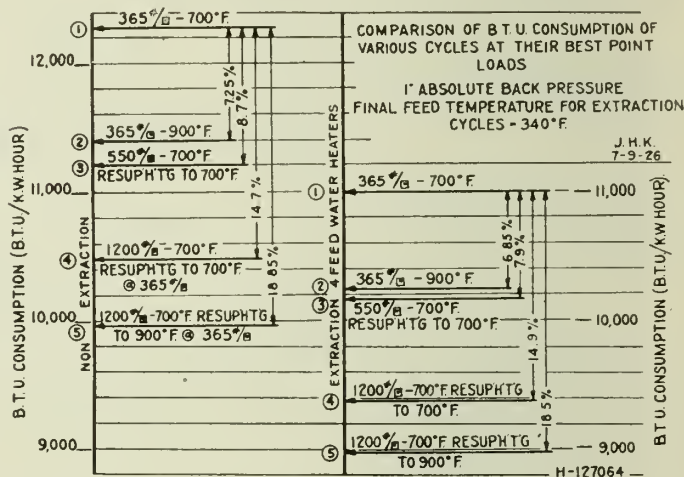 COMPARISON OF B.T.U. CONSUMPTION OF
VARIOUS CYCLES AT THEIR BEST POINT
LOADS
1" ABSOLUTE BACK PRESSURE
FINAL FEED TEMPERATURE FOR EXTRACTION
CYCLES - 340°F.
J.H.K.
7-9-26
B.T.U. CONSUMPTION (B.T.U/K.W. HOUR)
12,000
11,000
10,000
9,000
NON EXTRACTION
① 365#/□ - 700°F.
② 365#/□ - 900°F.
③ 550#/□ - 700°F.
RESUPHTG TO 700°F.
④ 1200#/□ - 700°F.
RESUPHTG TO 700°F.
@ 365#/□
⑤ 1200#/□ - 700°F. RESUPHTG
TO 900°F. @ 365#/□
7.25%
8.7%
14.7%
18.85%
EXTRACTION 4 FEED WATER HEATERS
① 365#/□ - 700°F.
② 365#/□ - 900°F.
③ 550#/□ - 700°F.
RESUPHTG TO 700°F.
④ 1200#/□ - 700°F. RESUPHTG
TO 700°F.
⑤ 1200#/□ - 700°F. RESUPHTG
TO 900°F.
6.85%
7.9%
14.9%
18.5%
11,000
10,000
9,000
B.T.U. CONSUMPTION (B.T.U/KW HOUR)
H-127064